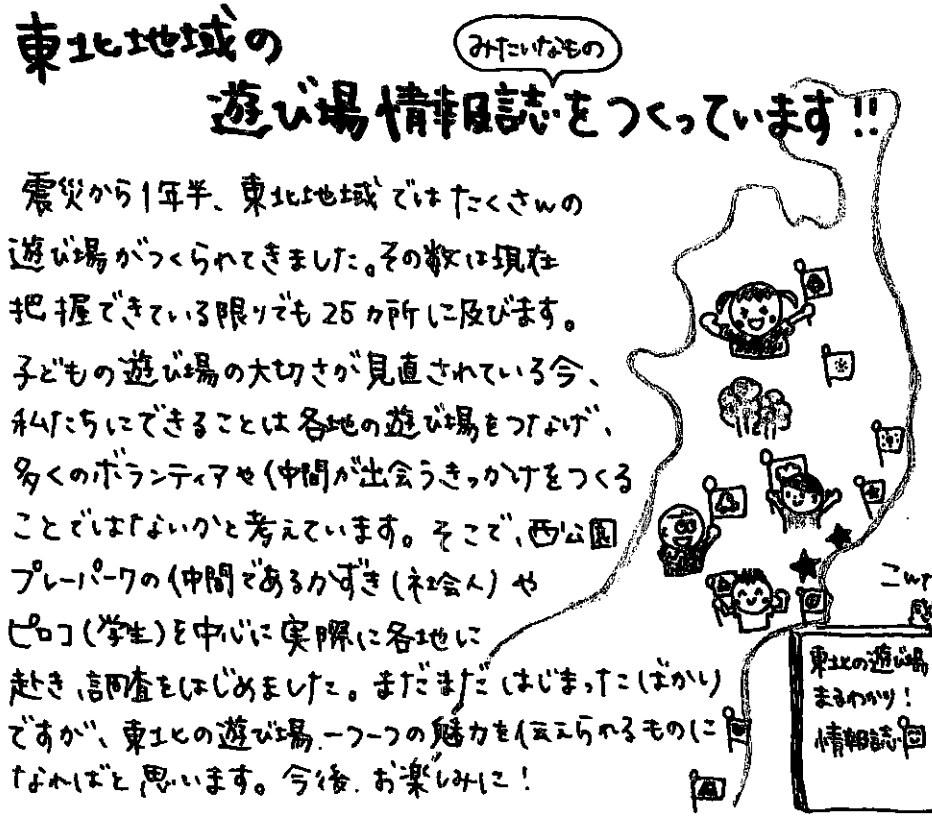 東北地域の
みたいなもの
遊び場情報誌をつくっています!!
震災から1年半、東北地域ではたくさんの
遊び場がつくられてきました。その数は現在
把握できている限りでも25カ所に及びます。
子どもの遊び場の大切さが見直されている今、
私たちにできることは各地の遊び場をつなげ、
多くのボランティアや仲間が出会うきっかけをつくる
ことではないかと考えています。そこで、西公園
プレーパークの仲間であるかずき(社会人)や
ピロコ(学生)を中心に実際に各地に
赴き、調査をはじめました。まだまだはじまったばかり
ですが、東北の遊び場、一つ一つの魅力を伝えられるものに
なればと思います。今後、お楽しみに!
東北の遊び場
まるわかり!
情報誌